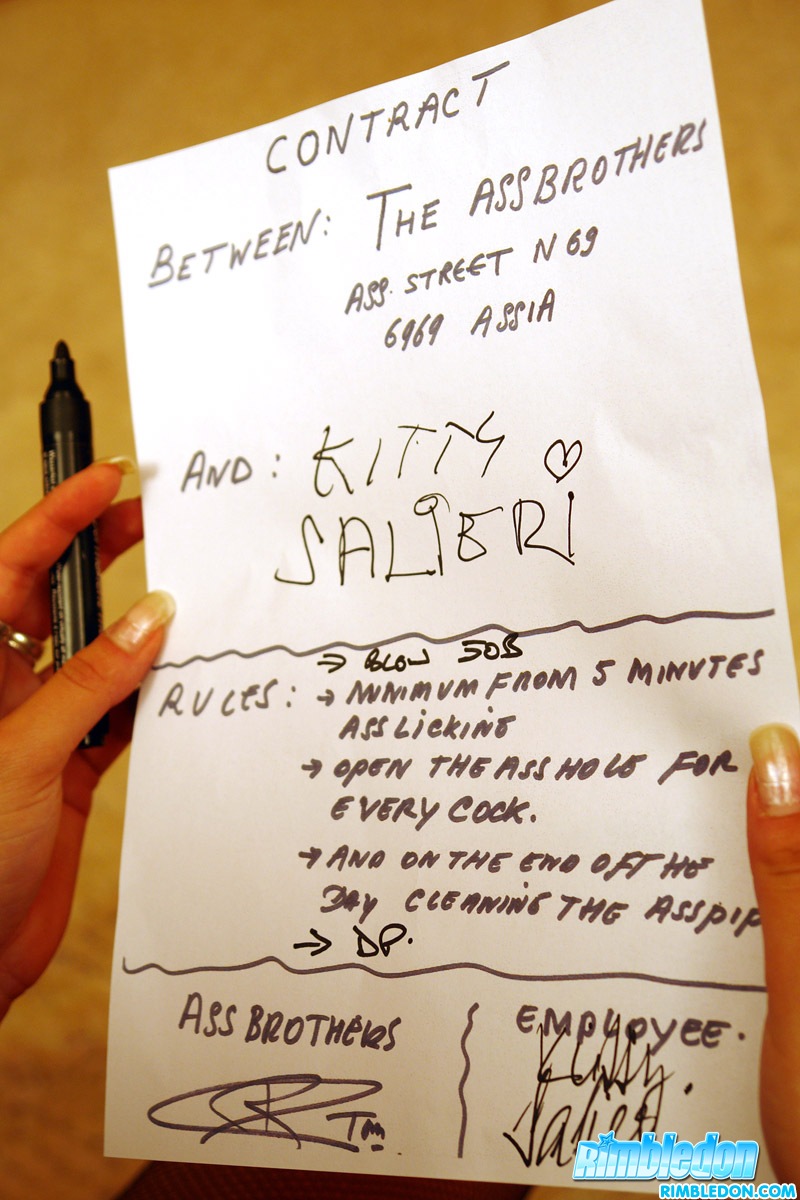 CONTRACT
BETWEEN: THE ASSBROTHERS
ASS. STREET N 69
6969 ASSIA
AND: KITTY ♡
SALIERI
→ BLOW JOB
RULES: → MINIMUM FROM 5 MINUTES
ASS LICKING
→ OPEN THE ASSHOLE FOR
EVERY COCK.
→ AND ON THE END OFF THE
DAY CLEANING THE ASSPIP
→ DP.
ASS BROTHERS
EMPLOYEE.
Kitty
Salieri
Rimbledon
RIMBLEDON.COM